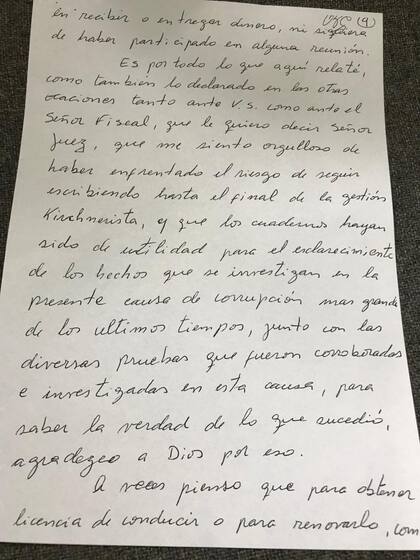 (9)
en recibir o entregar dinero, ni siquiera
de haber participado en alguna reunión.
Es por todo lo que aquí relaté,
como también lo declarado en las otras
ocaciones tanto ante V.S. como ante el
Señor Fiscal, que le quiero decir Señor
Juez, que me siento orgulloso de
haber enfrentado el riesgo de seguir
escribiendo hasta el final de la gestión
Kirchnerista, y que los cuadernos hayan
sido de utilidad para el esclarecimiento
de los hechos que se investigan en la
presente causa de corrupción mas grande
de los ultimos tiempos, junto con las
diversas pruebas que fueron corroboradas
e investigadas en esta causa, para
saber la verdad de lo que sucedió,
agradezco a Dios por eso.
A veces pienso que para obtener
licencia de conducir o para renovarlo, com